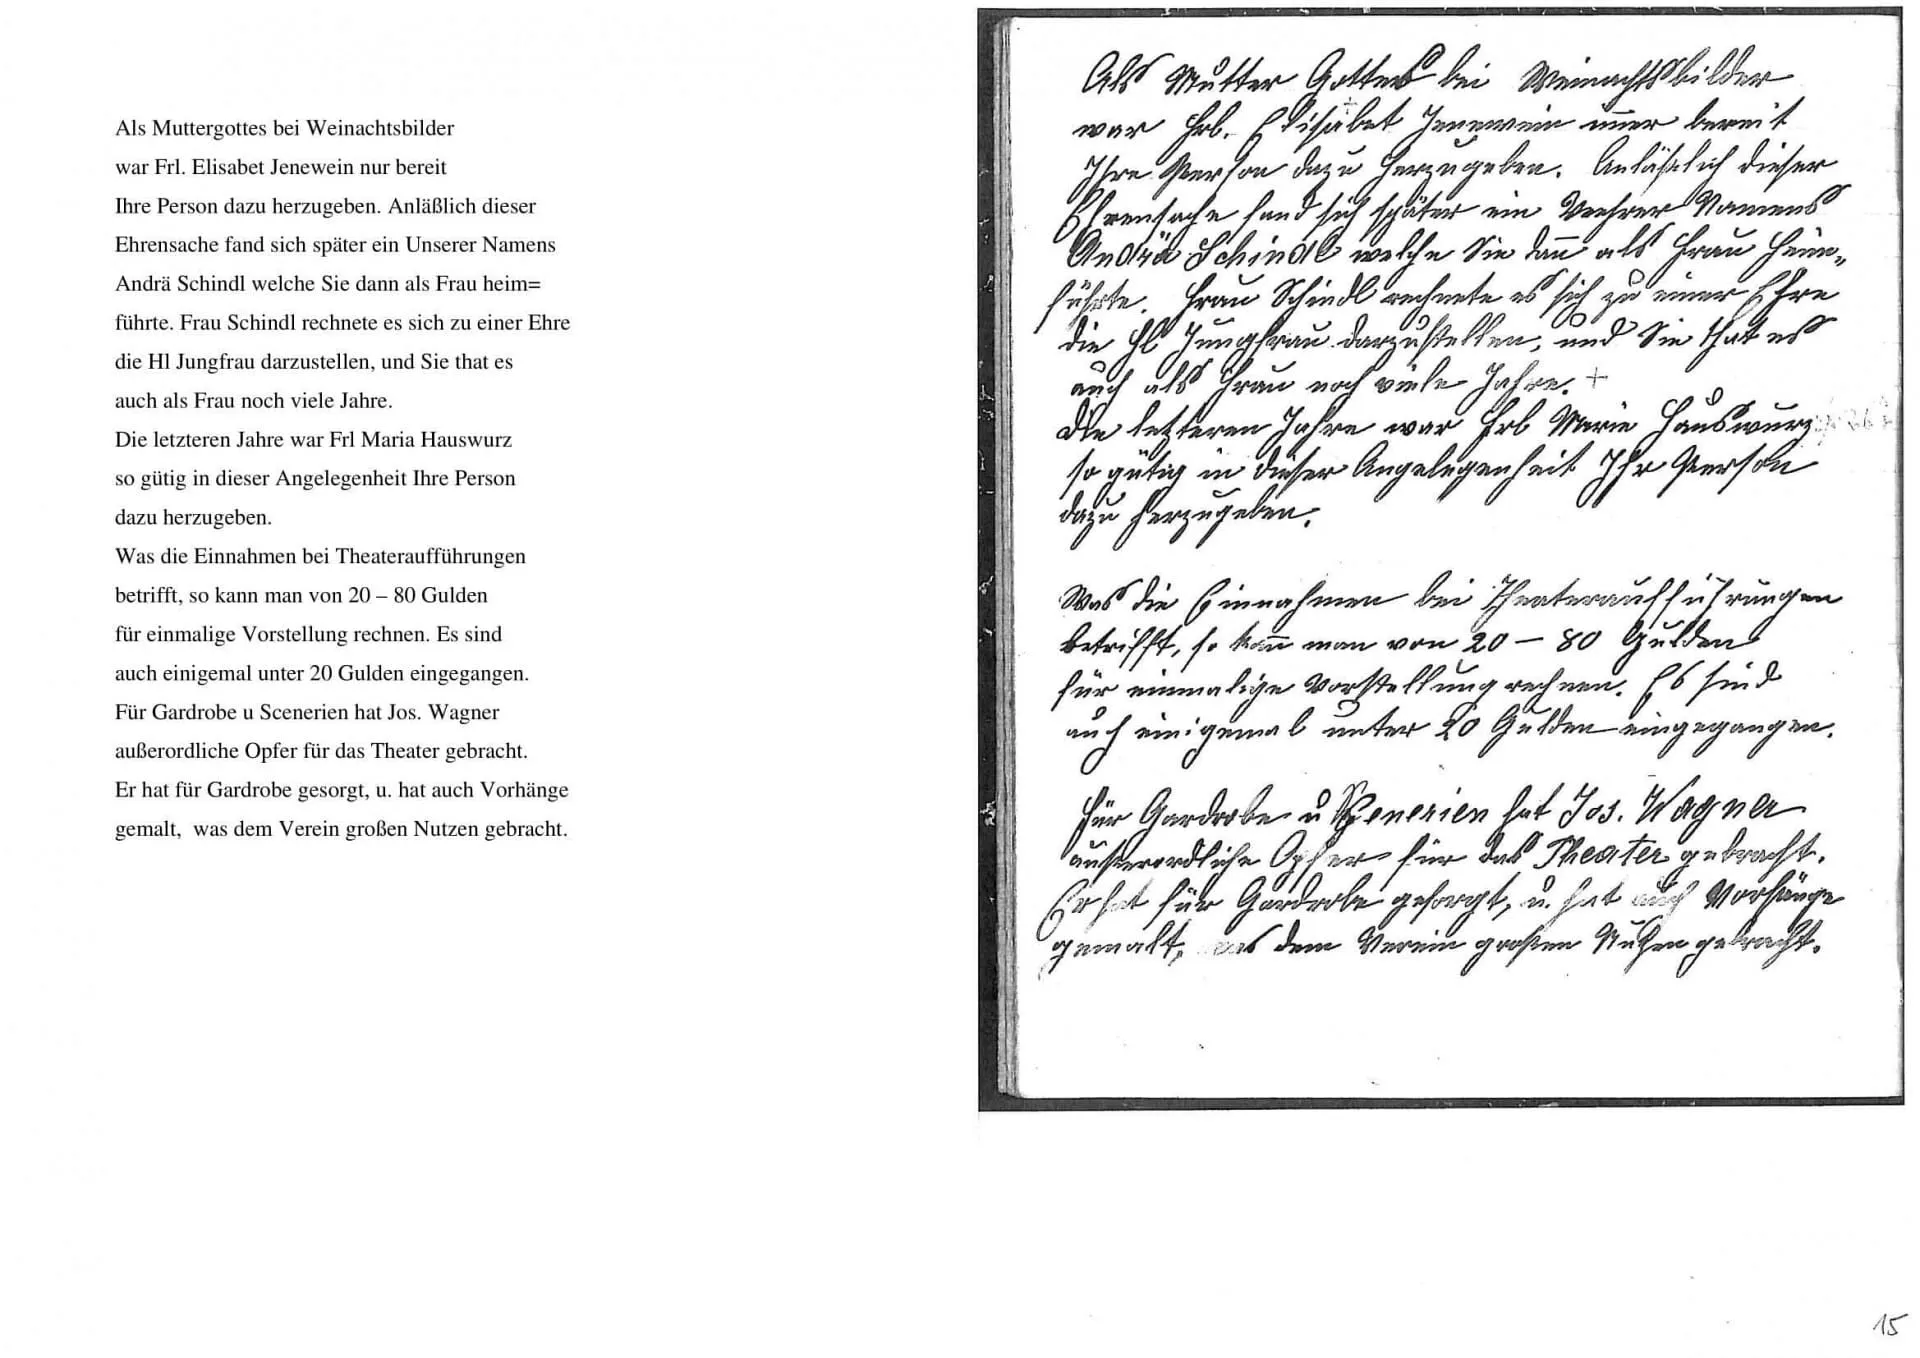 Als Muttergottes bei Weinachtsbilder
war Frl. Elisabet Jenewein nur bereit
Ihre Person dazu herzugeben. Anläßlich dieser
Ehrensache fand sich später ein Unserer Namens
Andrä Schindl welche Sie dann als Frau heim=
führte. Frau Schindl rechnete es sich zu einer Ehre
die Hl Jungfrau darzustellen, und Sie that es
auch als Frau noch viele Jahre.
Die letzteren Jahre war Frl Maria Hauswurz
so gütig in dieser Angelegenheit Ihre Person
dazu herzugeben.
Was die Einnahmen bei Theateraufführungen
betrifft, so kann man von 20 – 80 Gulden
für einmalige Vorstellung rechnen. Es sind
auch einigemal unter 20 Gulden eingegangen.
Für Gardrobe u Scenerien hat Jos. Wagner
außerordliche Opfer für das Theater gebracht.
Er hat für Gardrobe gesorgt, u. hat auch Vorhänge
gemalt, was dem Verein großen Nutzen gebracht.
Als Mutter Gottes bei Weinachtsbilder
war Frl. Elisabet Jenewein im̅er bereit
Ihre Person dazu herzugeben. Anläßlich dieser
Ehrensache fand sich später ein Verehrer Namens
Andrä Schindl welche Sie dan̅ als Frau heim„
führte. Frau Schindl rechnete es sich zu einer Ehre
die Hl Jungfrau darzustellen, und Sie that es
auch als Frau noch viele Jahre. +
Die letzteren Jahre war Frl Marie Hauswurz
so gütig in dieser Angelegenheit Ihr Person
dazu herzugeben.
Was die Einnahmen bei Theateraufführungen
betrifft, so kan̅ man von 20 – 80 Gulden
für einmalige Vorstellung rechnen. Es sind
auch einigemal unter 20 Gulden eingegangen.
Für Gardrobe u Scenerien hat Jos. Wagner
außerordliche Opfer für das Theater gebracht.
Er hat für Gardrobe gesorgt, u. hat auch Vorhänge
gemalt, was dem Verein großen Nutzen gebracht.
15